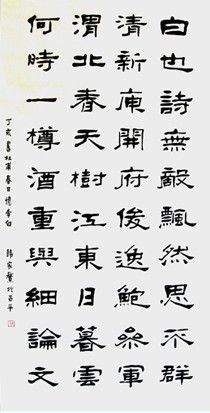 白也詩無敵飄然思不群
清新庾開府俊逸鮑參軍
渭北春天樹江東日暮雲
何時一樽酒重與細論文
丁亥書杜甫春日憶李白 韓家於昌平